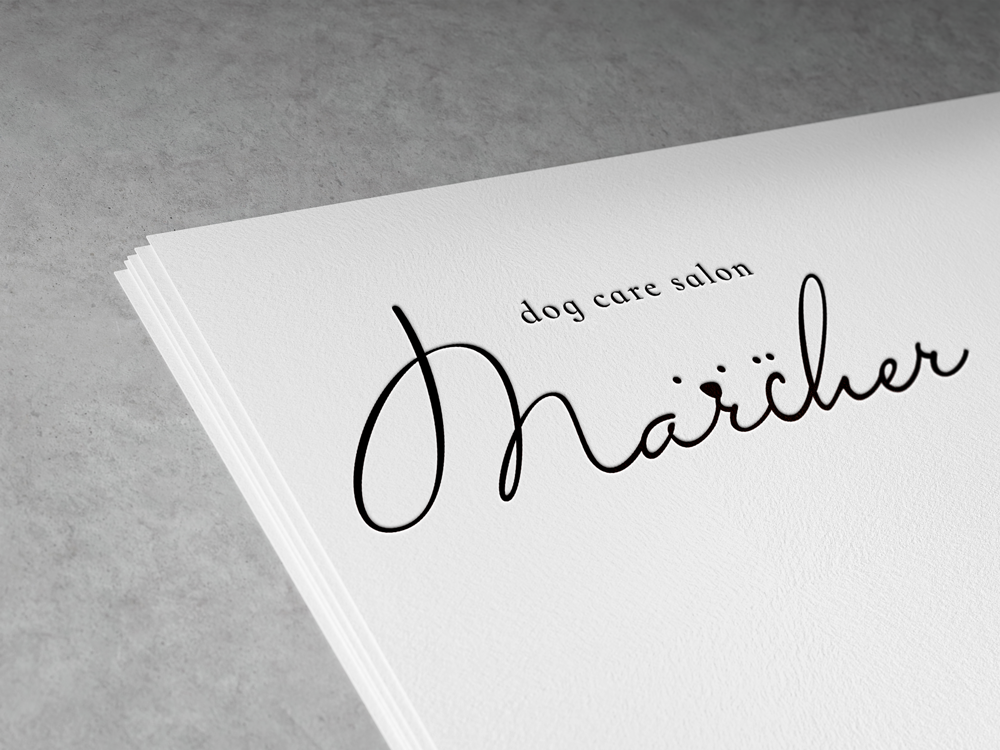 dog care salon
Märcher